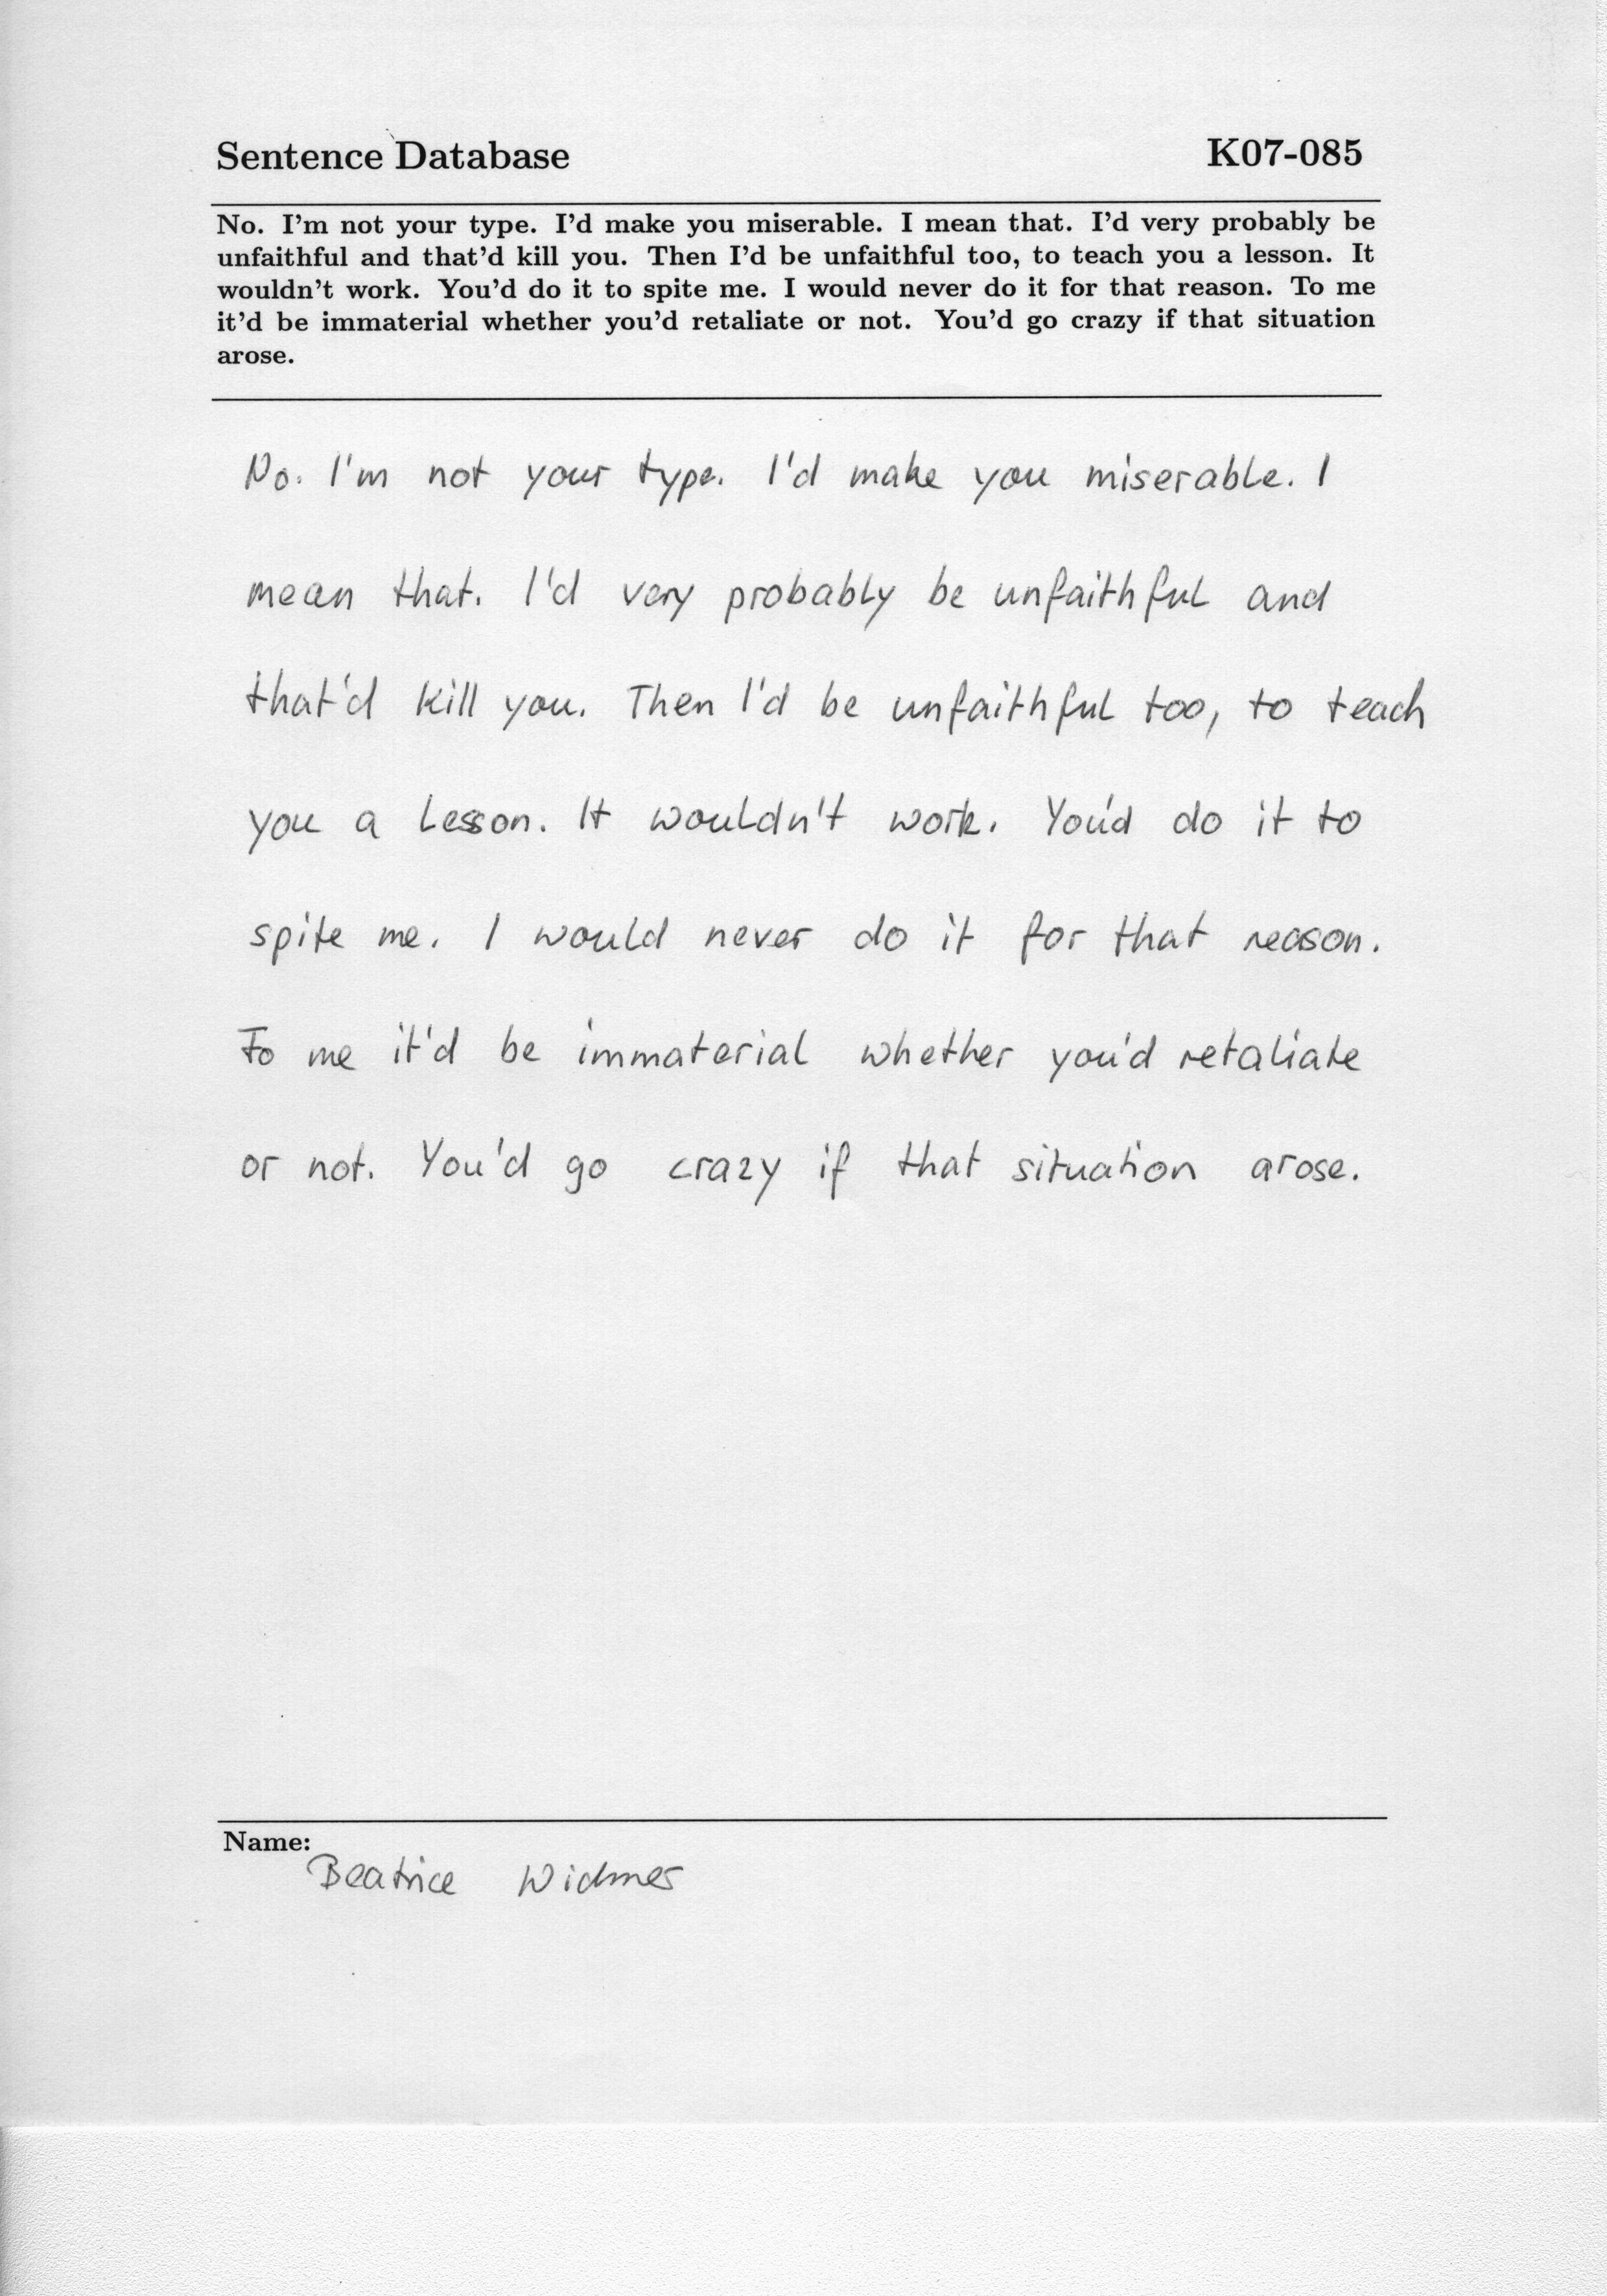 Sentence Database K07-085
No. I'm not your type. I'd make you miserable. I mean that. I'd very probably be
unfaithful and that'd kill you. Then I'd be unfaithful too, to teach you a lesson. It
wouldn't work. You'd do it to spite me. I would never do it for that reason. To me
it'd be immaterial whether you'd retaliate or not. You'd go crazy if that situation
arose.
No. I'm not your type. I'd make you miserable. I
mean that. I'd very probably be unfaithful and
that'd kill you. Then I'd be unfaithful too, to teach
you a lesson. It wouldn't work. You'd do it to
spite me. I would never do it for that reason.
To me it'd be immaterial whether you'd retaliate
or not. You'd go crazy if that situation arose.
Name:
Beatrice Widmer